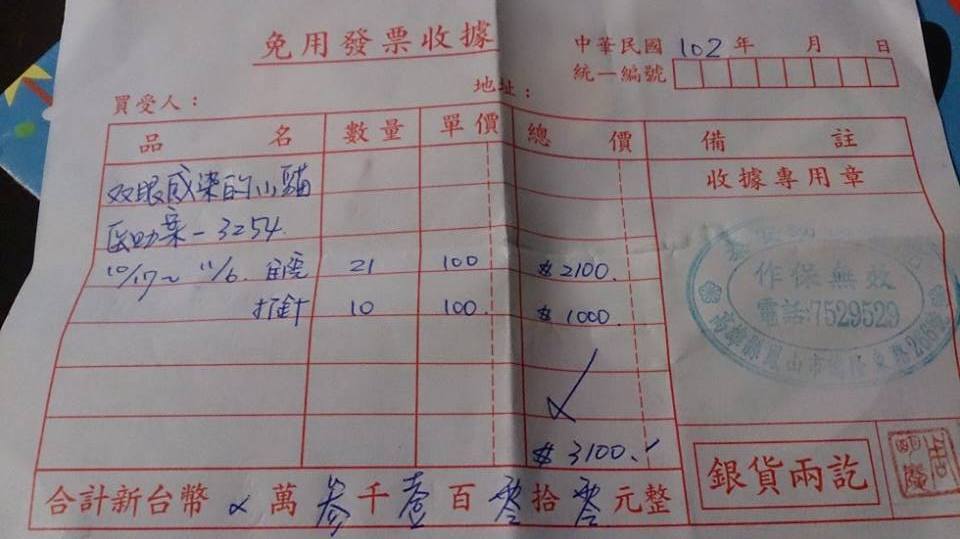 免用發票收據
中華民國 102 年 月 日
統一編號
買受人： 地址：
品名 數量 單價 總價 備註
收據專用章
双眼感染的小貓
医助案-3254.
10/17~11/6. 住院 21 100 $2100.
打針 10 100. $1000.
$3100.
作保無效
電話:7529529
合計新台幣 ㄨ 萬 參 千 壹 百 零 拾 零 元整
銀貨兩訖